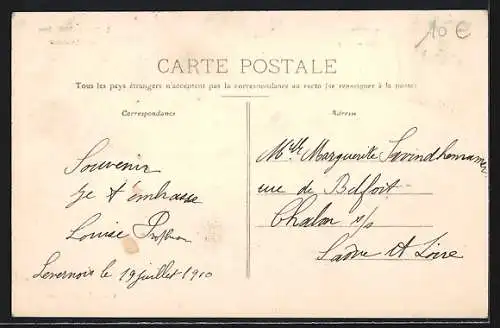 10 €
CARTE POSTALE
Tous les pays étrangers n'acceptent pas la correspondance au recto (se renseigner à la poste)
Correspondance
Adresse
Souvenir
Je t'embrasse
Louise
Levernois le 19 juillet 1910
Mlle Marguerite
rue de Belfort
Chalon s/s
Saône et Loire